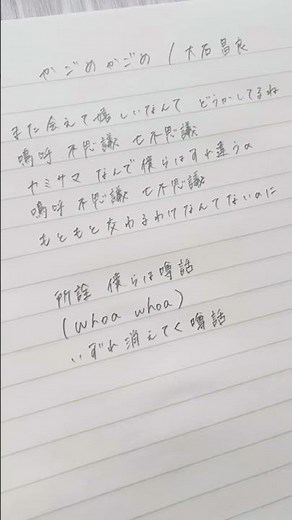 かごめかごめ / 大石昌良
また会えて嬉しいなんて どうかしてるね
嗚呼 不思議 七不思議
カミサマ なんで僕らはすれ違うの
嗚呼 不思議 七不思議
もともと交わるわけなんてないのに
所詮 僕らは噂話
(whoa whoa)
いずれ消えてく噂話